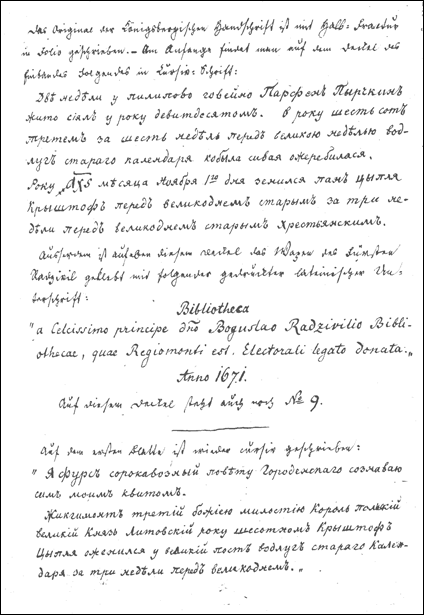 Das Original der Königsbergischen Handschrift ist mit Halb-Fractur
in Folio geschrieben. – Am Anfange findet man auf dem Deckel des
Einbandes Folgendes in Cursiv-Schrift:
Двѣ недѣли у пилипово говѣйно Парфенъ Пырскинъ
жито сіялъ у року девитдесятомъ. в року шесть сотъ
третемъ за шесть недѣль передъ великою недѣлью вод-
лугъ стараго календаря кобыла сивая ожеребилася.
Року мѣсяца Ноября 1го дня зенился панъ Цыпля
Крыштофъ передъ великоднемъ старымъ за три не-
дѣли передъ великоднемъ старымъ хрестьянскимъ.
Ausserdem ist auf diesem Deckel das Wapen des Fürsten
Radzivil geklebt mit folgender gedruckter lateinischer Un-
terschrift:
Bibliotheca
"a Celcissimo principe dño Boguslao Radzivilio Bibli-
othecae, quae Regiomonti est. Electorali legato donata."
Anno 1671.
Auf diesem Deckel steht auch noch № 9.
Auf dem ersten Blatte ist wieder cursiv geschrieben:
"Я фурсъ сорокавозный повѣту Городенскаго сознаваю
симъ моимъ квитомъ.
Жикгимонтъ третій божіею милостію Король полскій
великій Князь Литовскій року шесотномъ Крыштофъ
Цыпля оженился у великій постъ водлугъ стараго Кален-
даря за три недѣли передъ великоднемъ."